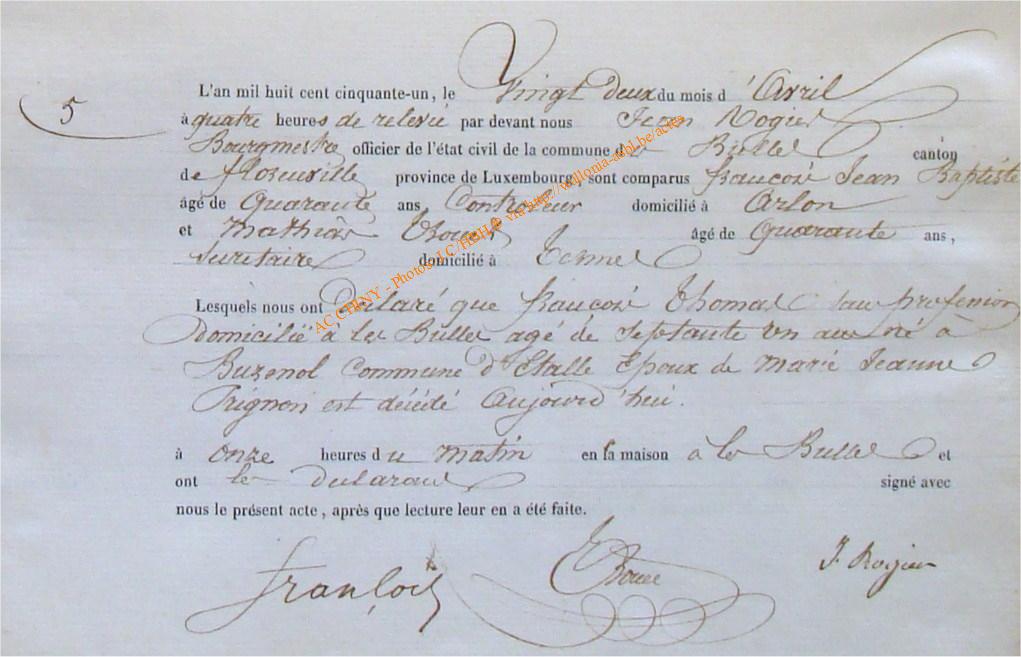 5
L'an mil huit cent cinquante-un, le Vingt Deux du mois d'Avril
à quatre heures de relevé par devant nous Jean Rogier
Bourgmestre officier de l'état civil de la commune de Bulles canton
de florenville province de Luxembourg, sont comparus françois Jean Baptiste
âgé de Quarante ans, Controleur domicilié à Arlon
et Mathias âgé de Quarante ans,
Secretaire domicilié à Termes
Lesquels nous ont declaré que françois thomas sans profession
Domicilié à les Bulles agé de septante un ans né à
Buzenol Commune d'Etalle Epoux de marie Jeanne
est décédé Aujourd'hui.
à onze heures du matin en sa maison à les Bulles et
ont les declarans signé avec
nous le présent acte, après que lecture leur en a été faite.
françois J. Rogier
AC CHINY - Photos J.C/HSH® via http://wallonia-asbl.be/actes